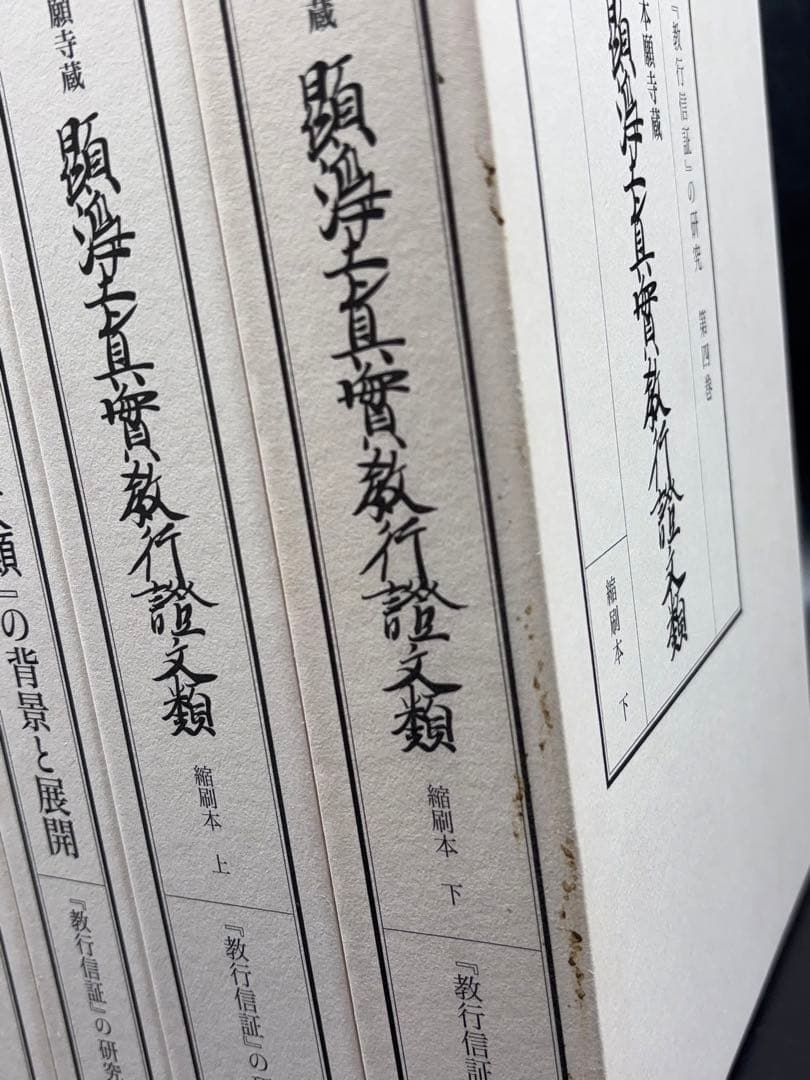 『教行信証』の研究 第四巻
本願寺蔵
顯淨土真實教行證文類
縮刷本 下
蔵
顯淨土真實教行證文類
縮刷本 下
『教行信証
願寺蔵
顯淨土真實教行證文類
縮刷本 上
『教行信証』の
類』の背景と展開
『教行信証』の研究